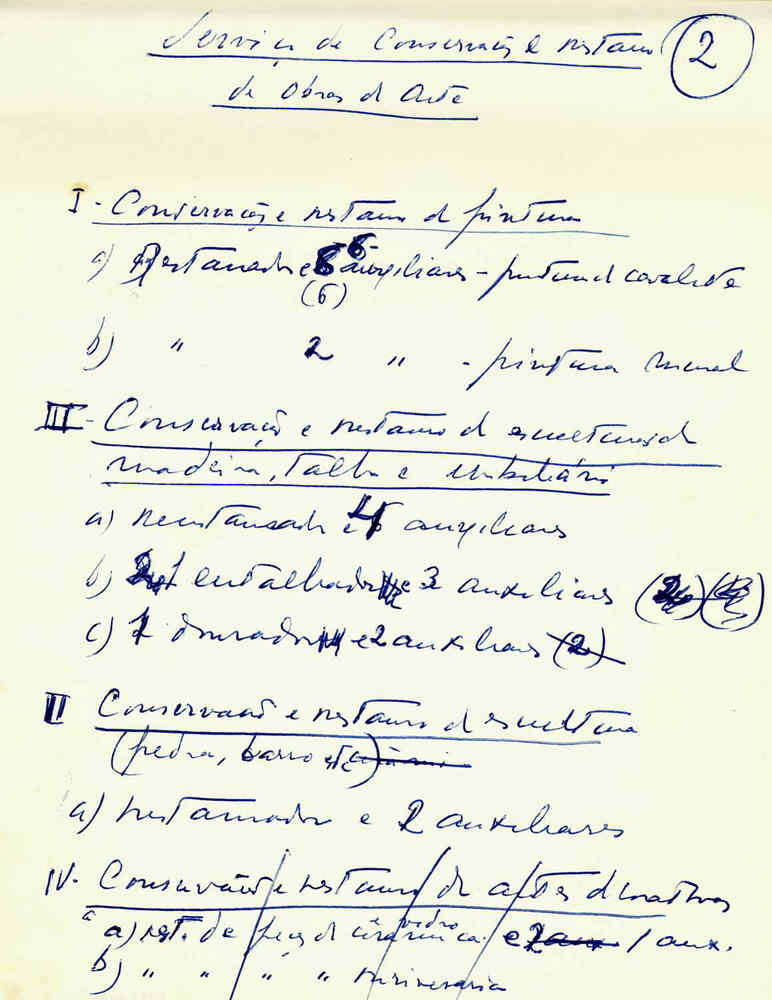 Serviço de Conservação e restauro 2
de Obras d Arte
I - Conservação e restauro d pintura
a) Restaurador e 6 auxiliares - pintura d cavalete
(6)
b) " 2 " - pintura mural
III - Conservação e restauro d esculturas d
madeira, talha e mobiliário
a) restaurador e 4 auxiliares
b) 1 entalhador e 3 auxiliares
c) 1 dourador e 2 auxiliares (2)
II Conservação e restauro d escultura
(pedra, barro etc)
a) restaurador e 2 auxiliares
IV - Conservação e restauro de artes decorativas
a) rest. de peças d cerâmica e vidro e 2 aux. 1 aux.
b) " " " " ourivesaria